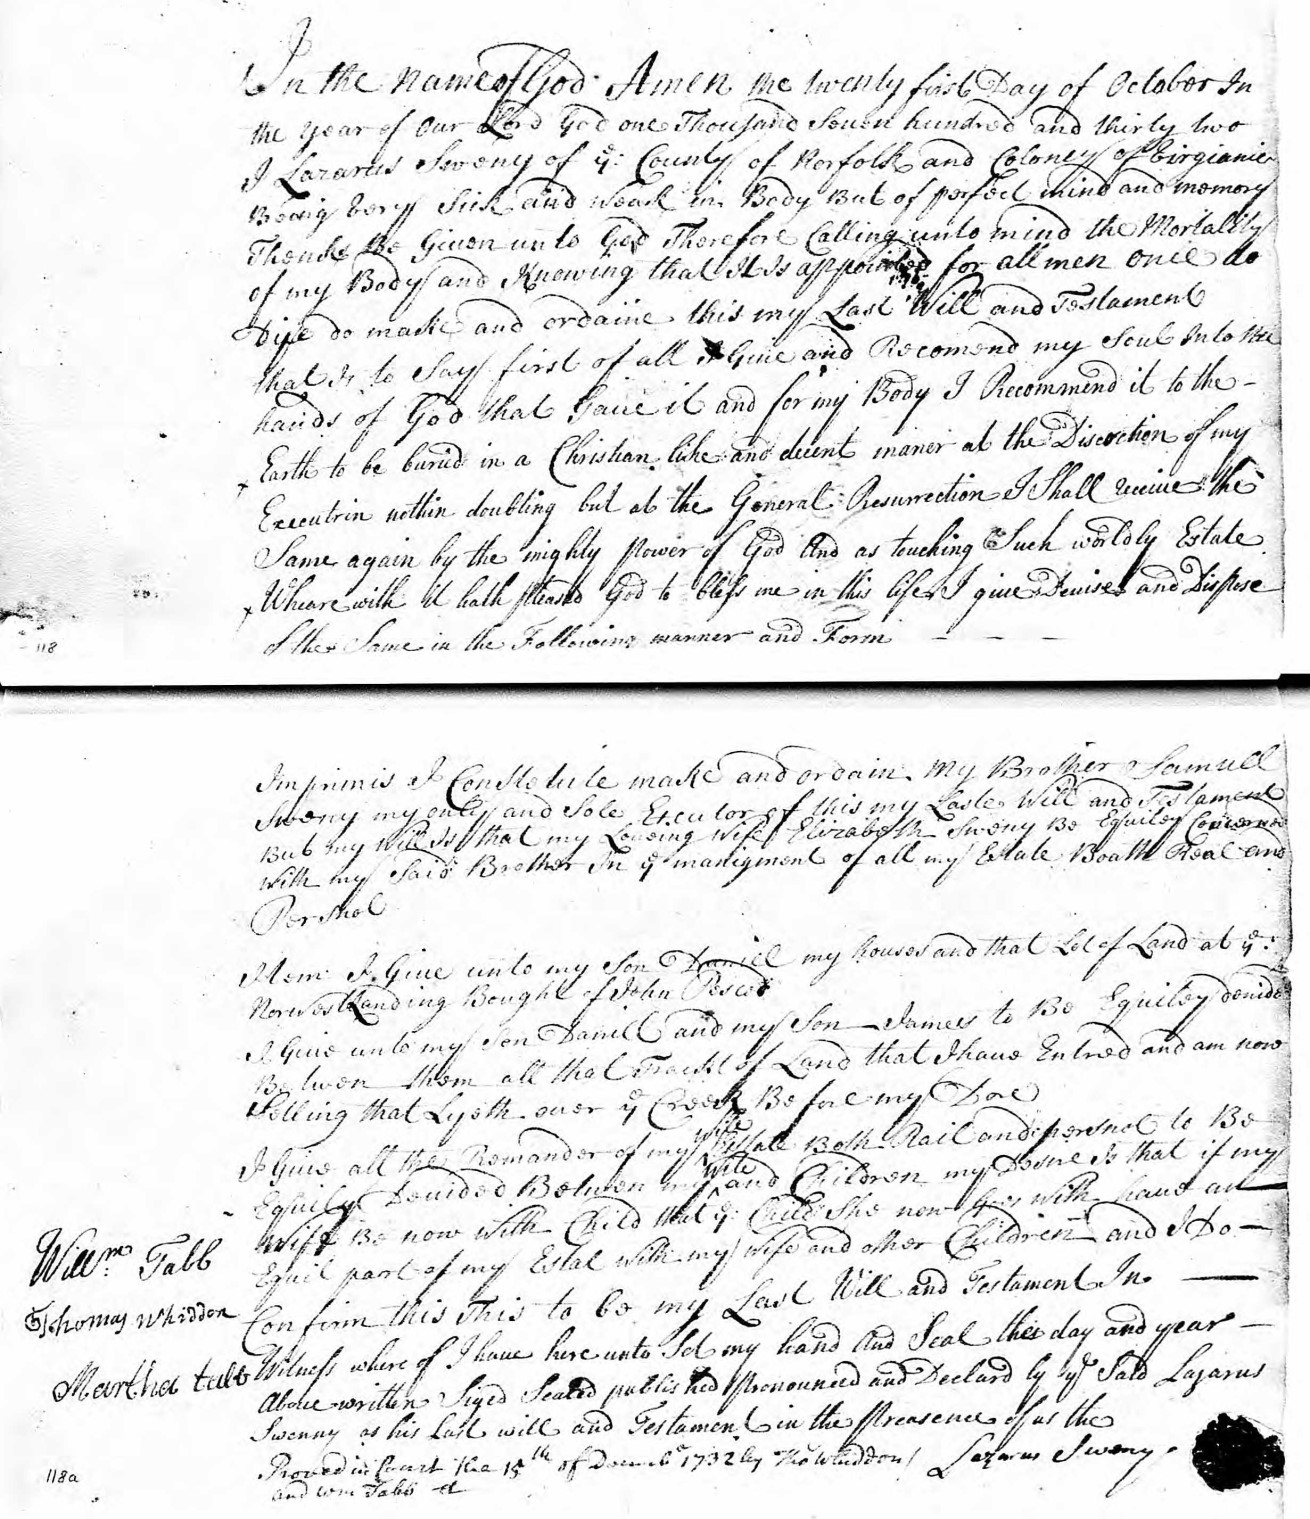 In the name of God Amen the twenty first Day of October In
the year of our Lord God one Thousand Seven hundred and thirty two
I Lazarus Sweny of ye: County of Norfolk and Coloney of Virgianie
Being very Sick and weak in Body But of perfect mind and memory
Thenks Be Given unto God Therefore Calling unto mind the Mortality
of my Body and Knowing that It Is appointed for all men once to
Dye do make and ordaine this my Last Will and Testament
that Is to Say first of all I Give and Recomend my Soul Into the
hands of God that Gave it and for my Body I Recommend it to the -
Earth to be buried in a Christian like and decent maner at the Discretion of my
Executrin nothin doubting but at the General Resurrection I Shall receive the
Same again by the mighty Power of God And as touching Such worldly Estate
Wheare with it hath pleased God to bless me in this life I give Devise and Dispose
of the Same in the Following manner and Form - - -
118
Imprimis I Constetute make and ordain My Brother Samuell
Sweny my only and Sole Executor of this my Laste Will and Testament
But my Will Is that my Loveing wife Elizabeth Sweny Be Equiley Concernd
with my Said Brother In ye manigment of all my Estate Boath Real and
Persnol
Item I Give unto my Son Daniell my houses and that Lot of Land at ye:
Norwest Landing Bought of John Pescod
I Give unto my Son Daniell and my Son James to Be Equiley devide
Betwen them all that Trackt of Land that I have Entred and am now
Selling that Lyeth over ye Creek Before my Dore
I Give all the Remander of my Estate Both Rail and persnol to Be
Equily Devided Between my wife and Children my Desire Is that if my
Wiff Be now with Child that ye: Child She now Goes with have an
Equil part of my Estat with my wife and other Children and I Do -
Confirm this This to be my Last Will and Testament In
Witness where of I have here unto Set my hand and Seal the day and year -
Above written Siged Sealed published pronounced and Declard by ye Said Lazarus
Swenny as his Last will and Testament in the Preasence of us the
Willm: Tabb
Thomas Whiddon
Martha tabb
Lazarus Sweny
Proved in Court the 15th of Decembr 1732 by Tho Whiddon
and Wm Tabb
118a